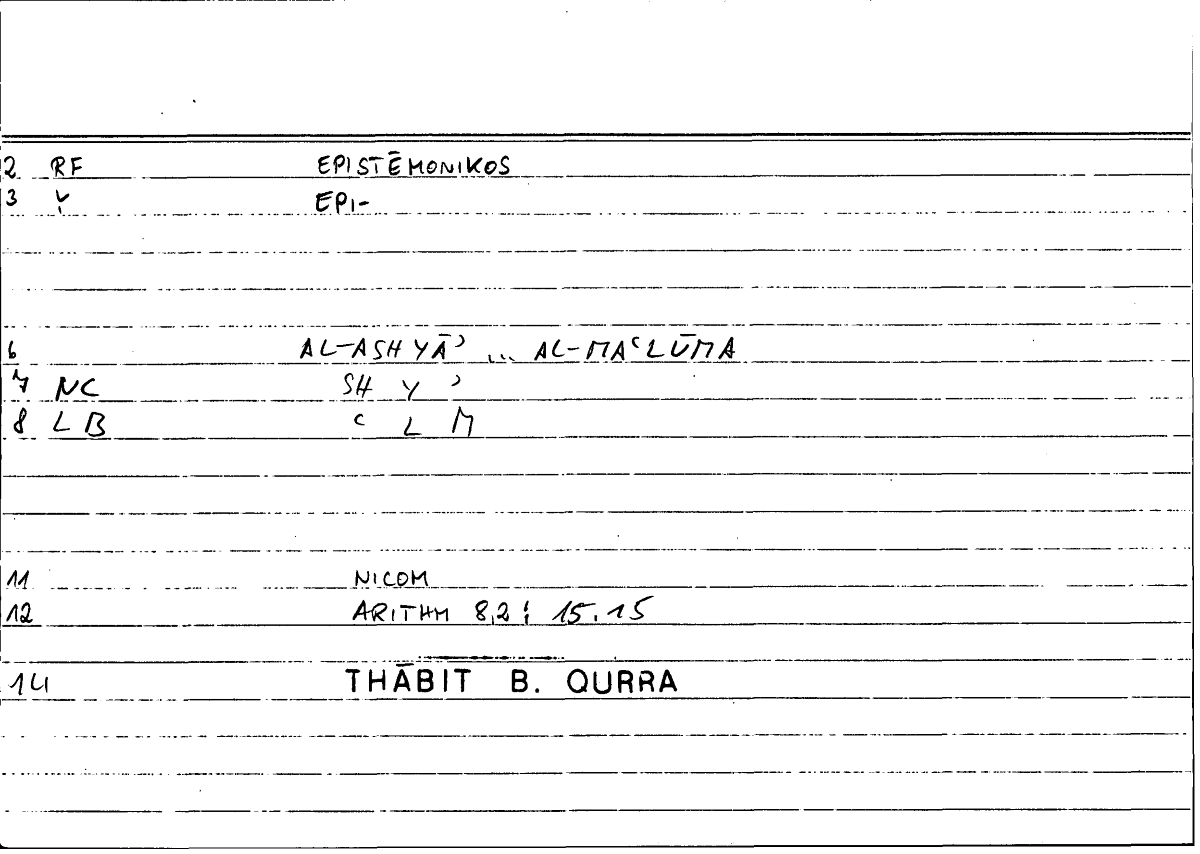 2 RF EPISTĒMONIKOS
3 Y EPI-
6 AL-ASHYĀʾ ... AL-MAʿLŪMA
7 NC SH Y ʾ
8 LB ʿ L M
11 NICOM
12 ARITHM 8,2; 15.15
14 THĀBIT B. QURRA